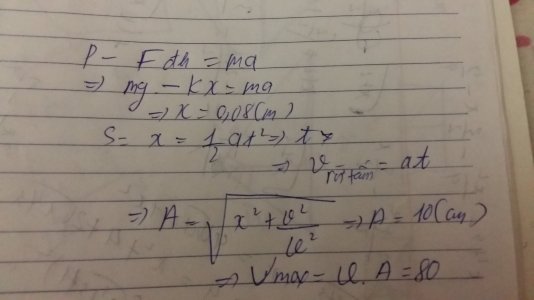 P - Fđh = ma
=> mg - Kx = ma
=> x = 0,08(m)
S = x = 1/2 at² => t
=> v rời tấm = at
=> A = √(x² + v²/ω²) => A = 10(cm)
=> Vmax = ω. A = 80